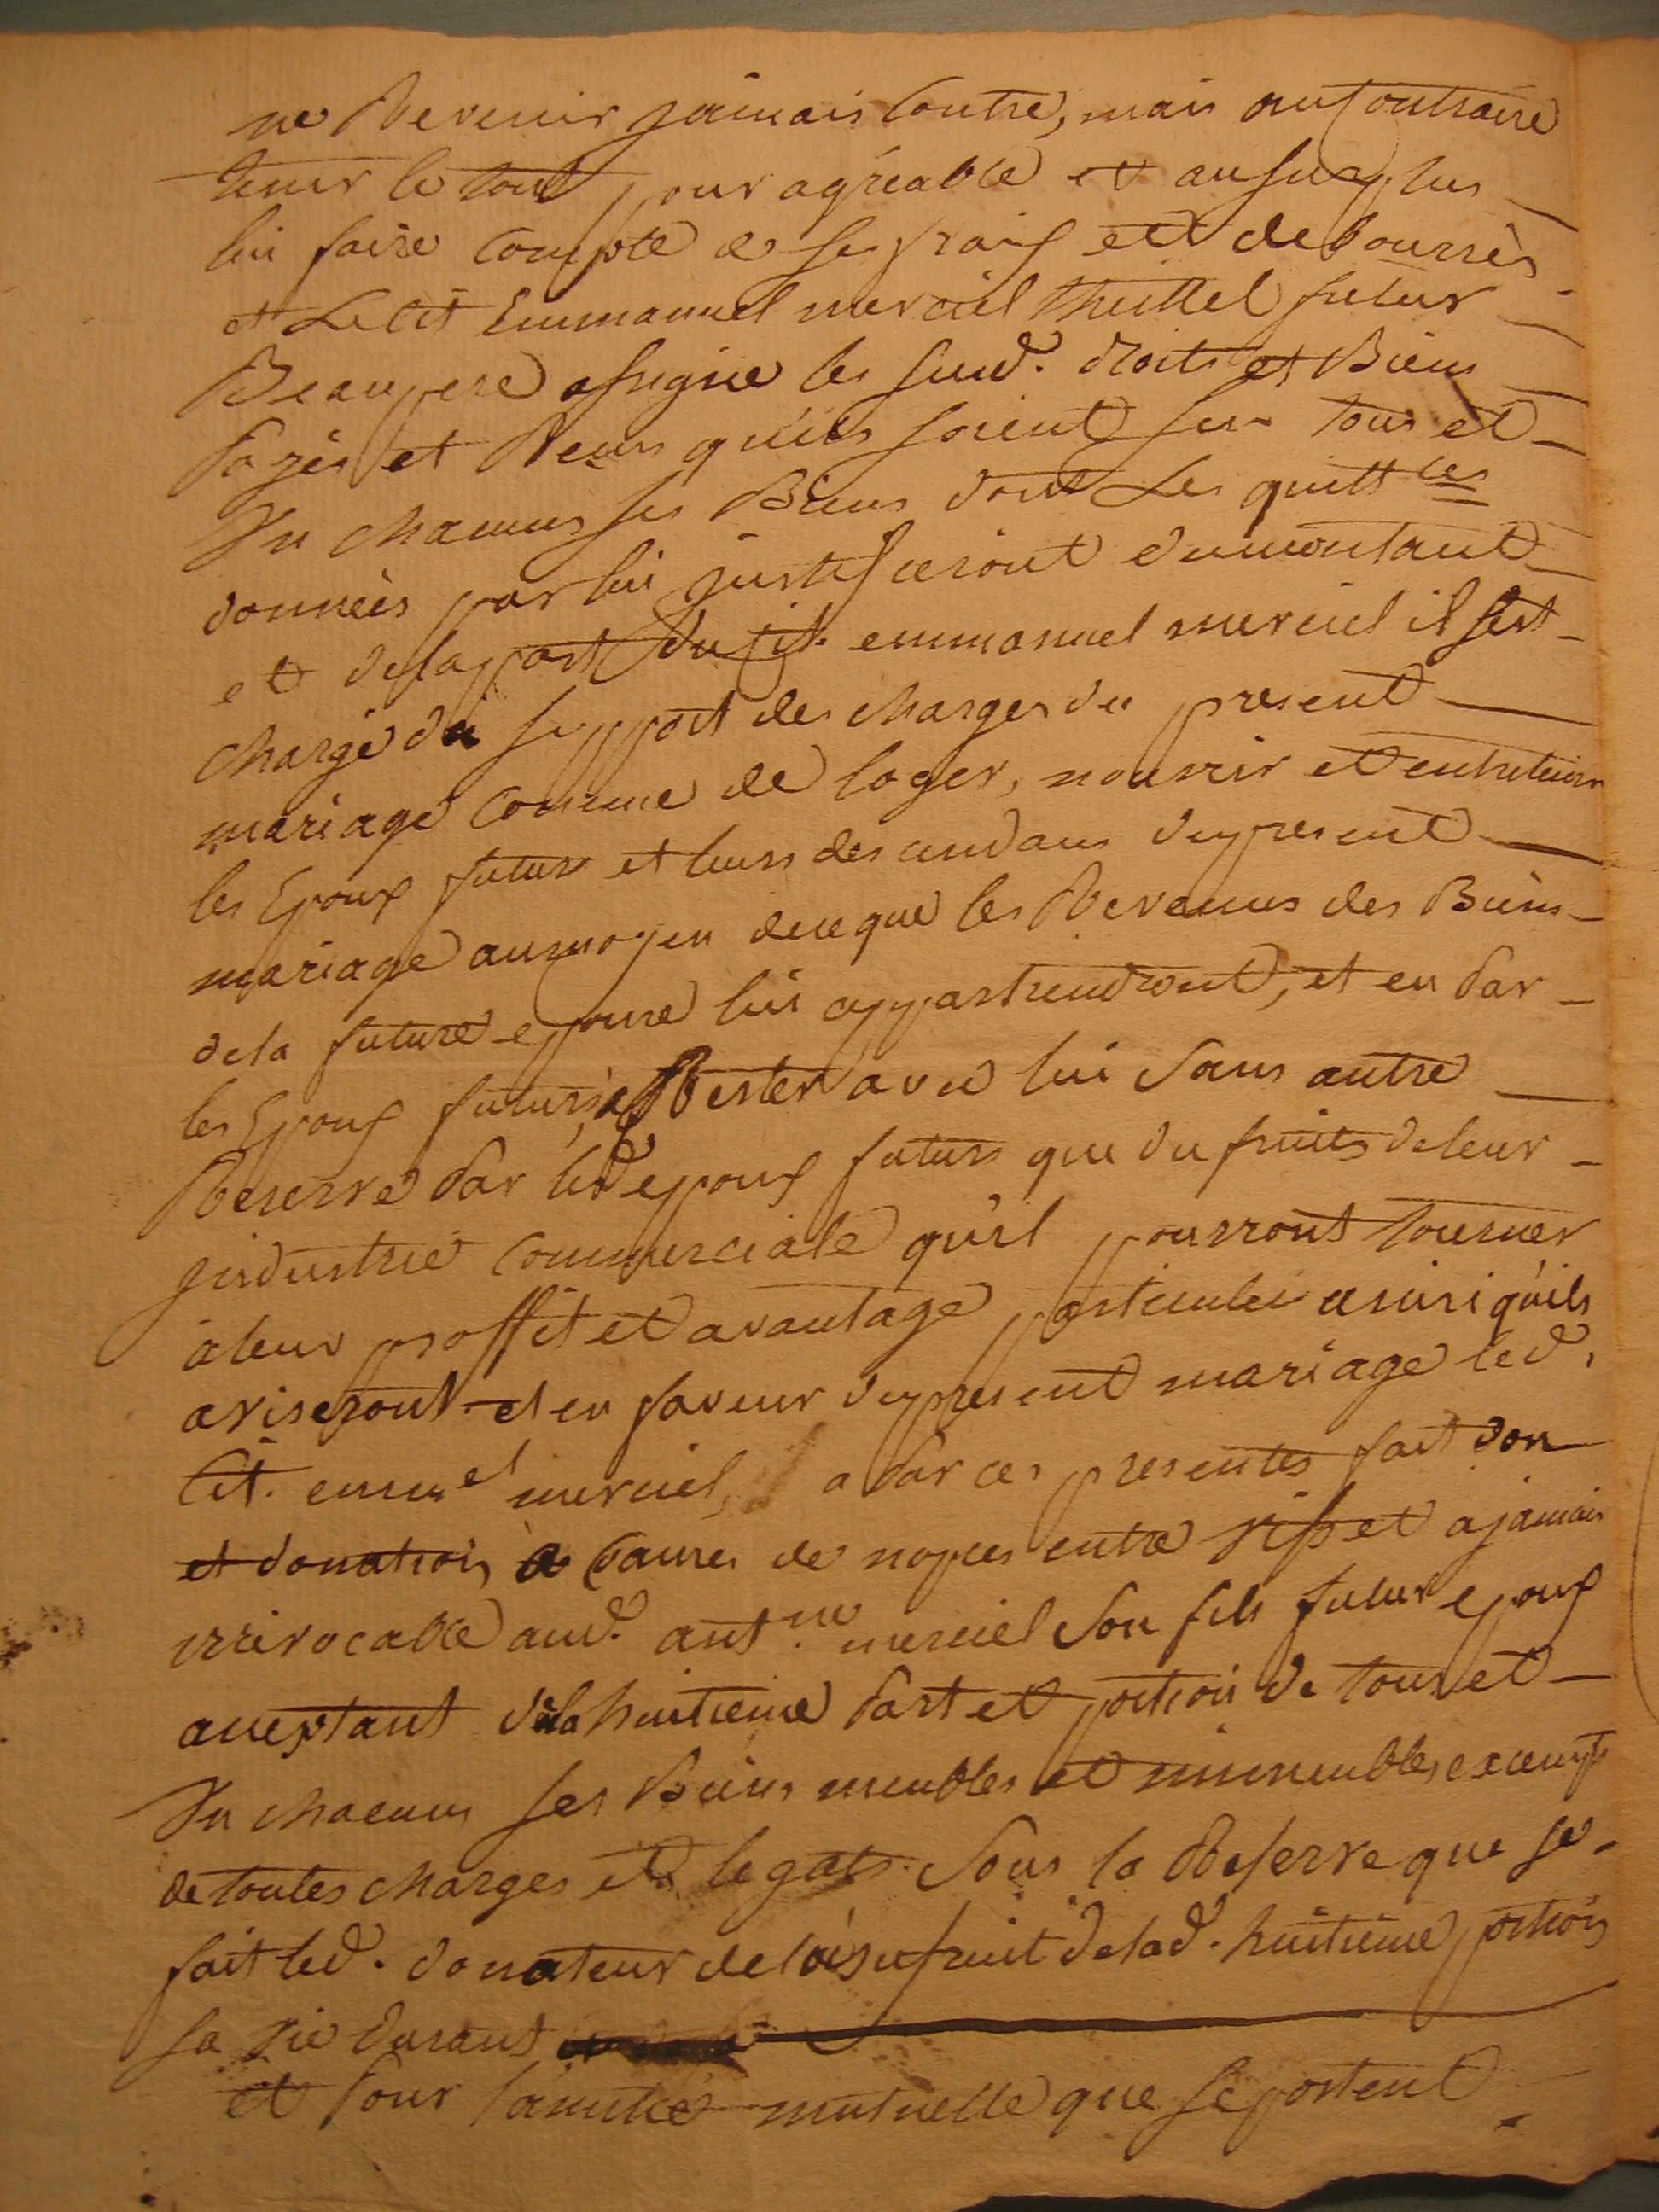 ne Revenir jamais Contre, mais au Contraire
tenir le tout pour agréable et au surplus
lui faire Compte de ses frais et deboursés
et Le Cit Emmanuel merciel futur
Beaupere assigne les susd. droits et Biens
Payés et Reçus qu'ils soient sur tous et
Un chacuns ses Biens dont Les quitt.ces
données par lui justifieront du montant
et de la part du Cit. emmanuel merciel il s'est
chargé du support des charges du present
mariage Comme de loger, nourrir et entretenir
les Epoux futurs et leurs descendans du present
mariage au moyen de ce que les Revenus des Biens
de la future epouse lui appartiendront, et en Par
les Epoux futurs à Rester avec lui Sans autre
Reserve Par lesd epoux futurs que du fruits de leur
jndustrie Commerciale qu'il pourront tourner
à leur proffit et avantage particulier ainsi qu'ils
aviseront et en faveur du present mariage led.
Cit. emm.el merciel, a Par ces presentes fait don
et donation à Causes de nopces entre vifs et a jamais
irrevocable aud. ant.ne merciel Son fils futur epoux
acceptant de la huitieme Part et portion de tous et
Un chacuns ses Biens meubles et immeubles exempt
de toutes charges et legats. Sous la Reserve que se
fait led. donateur de l'usufruit de lad. huitieme portion
sa vie durant
et Pour l'amitié mutuelle que se portent